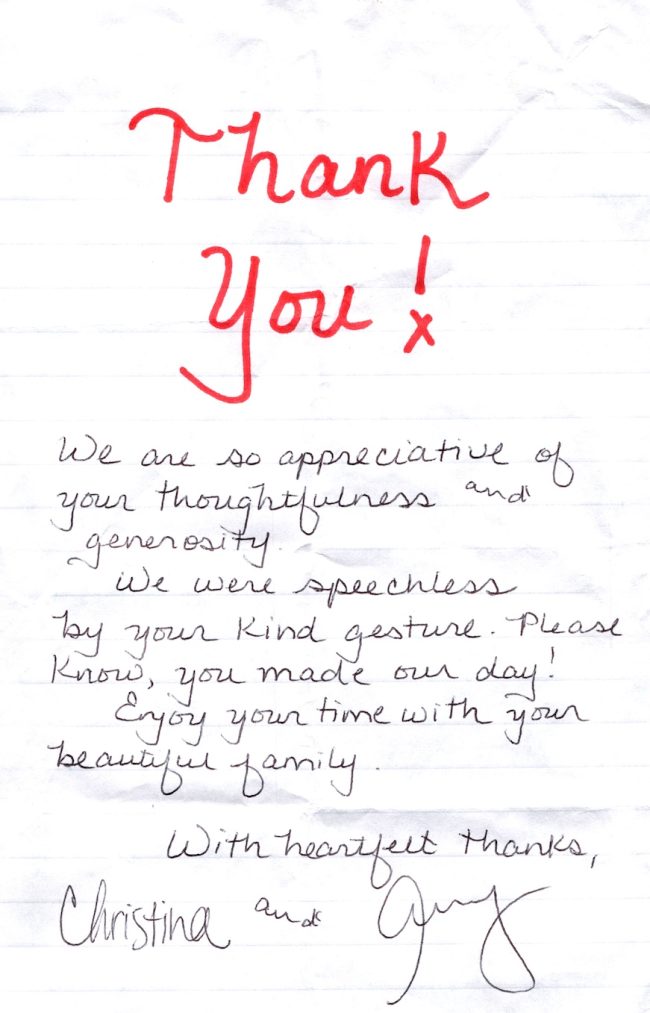 Thank
You!
x
We are so appreciative of
your thoughtfulness and
generosity.
We were speechless
by your kind gesture. Please
know, you made our day!
Enjoy your time with your
beautiful family.
With heartfelt thanks,
Christina and Amy